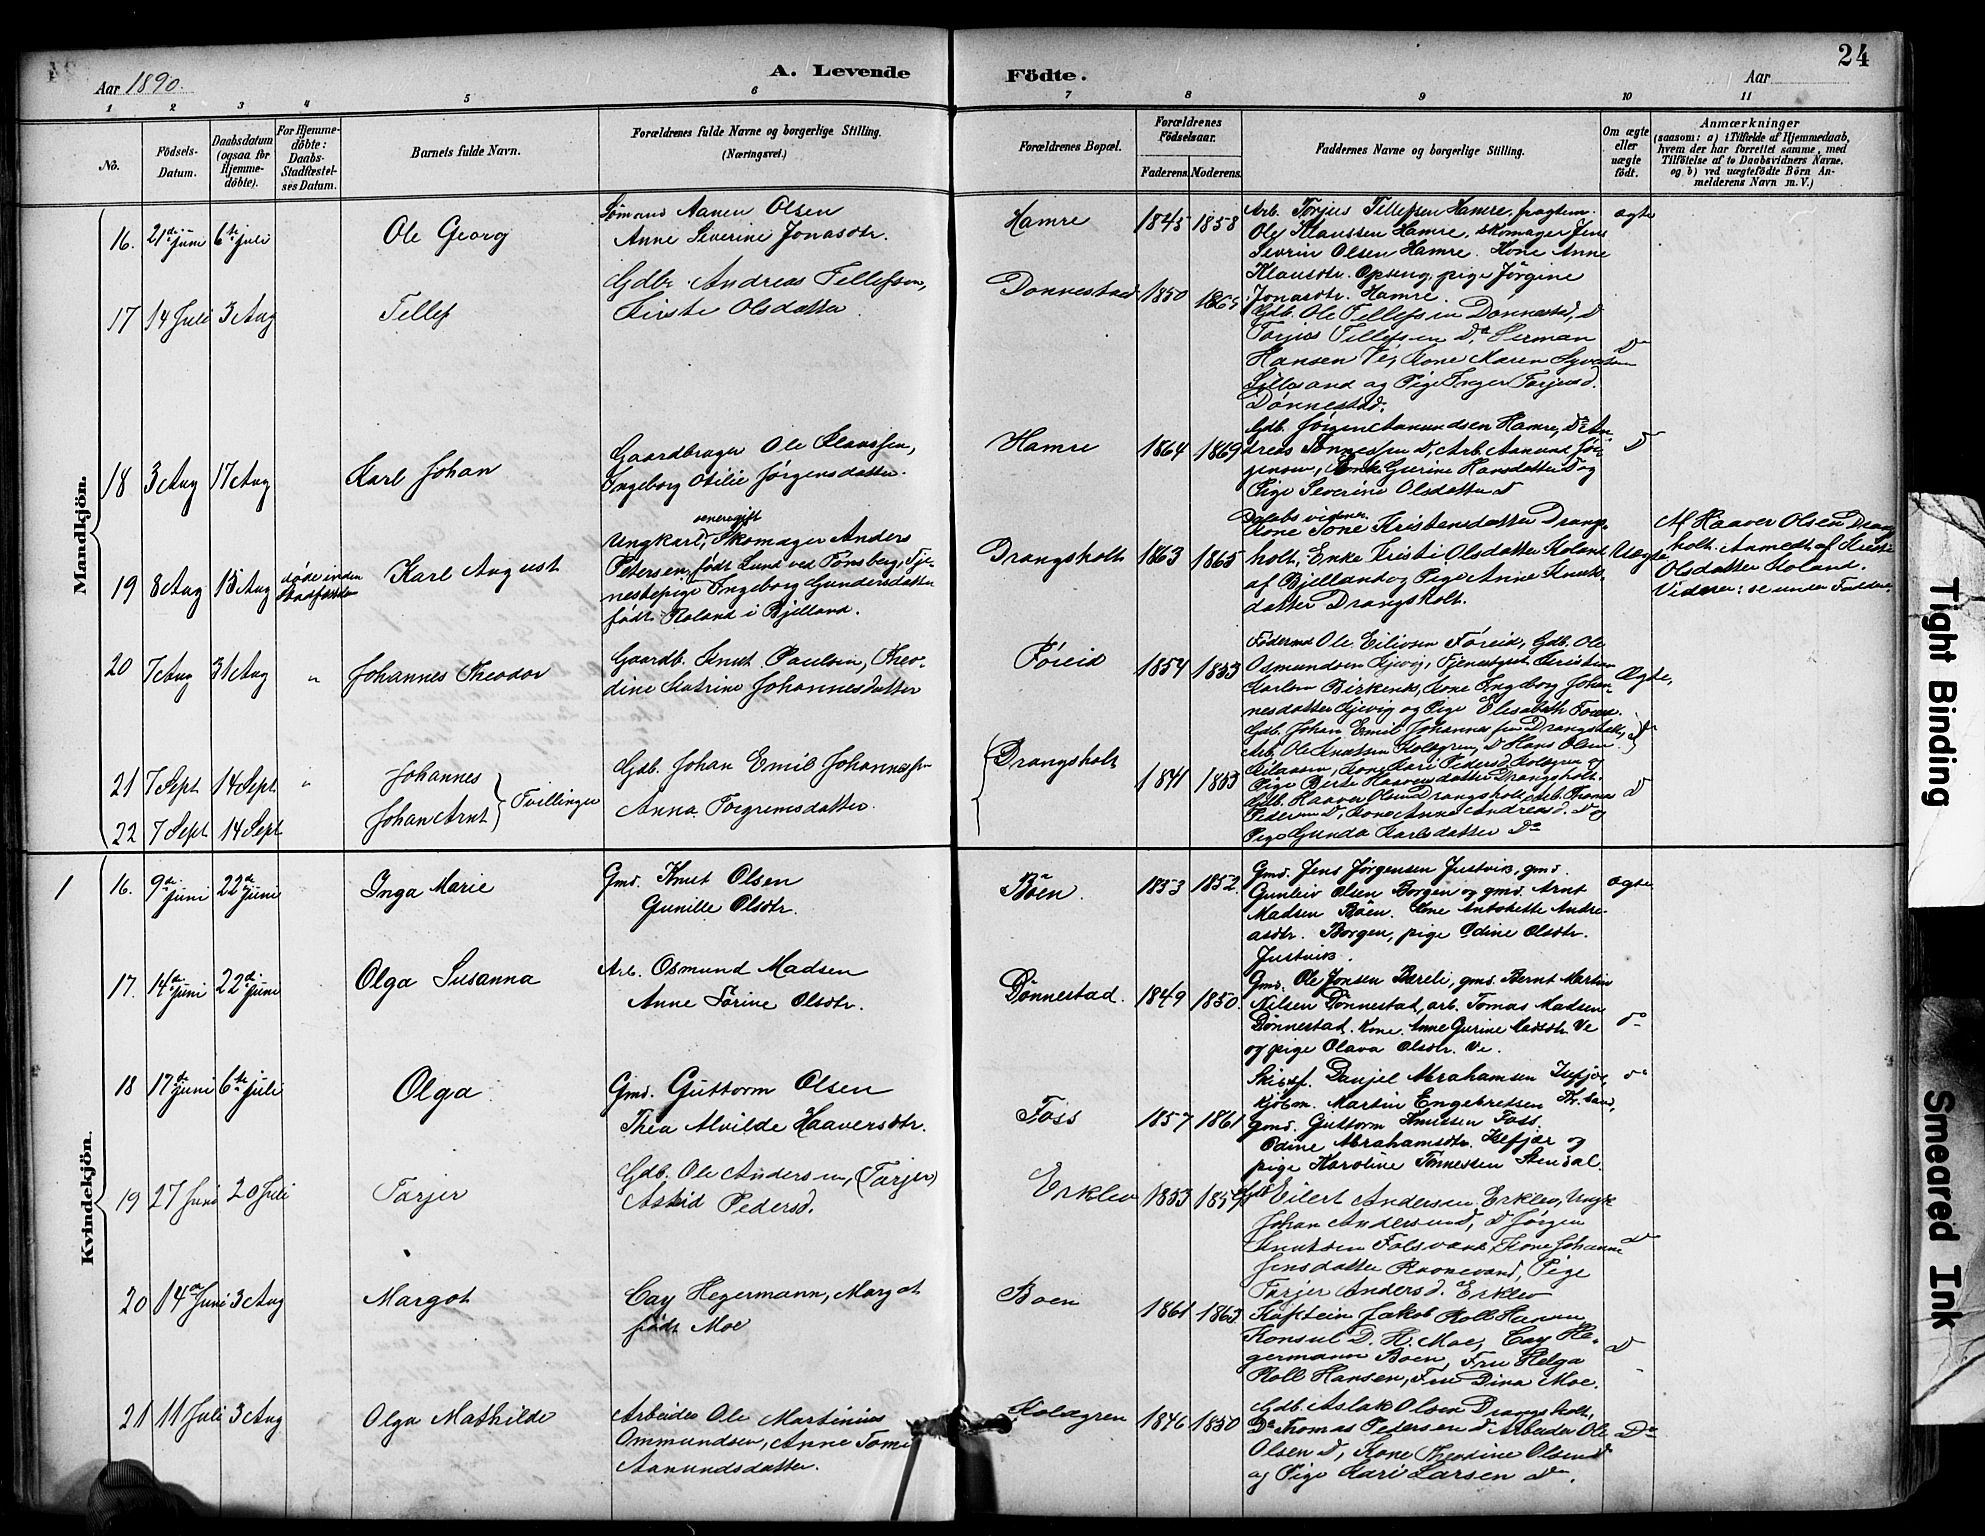 Aar 1890.
A. Levende
Födte.
Aar
24
1 2 3 4 5 6 7 8 9 10 11
No.
Födsels-Datum.
Daabsdatum (ogsaa for Hjemmedöbte).
For Hjemmedöbte: Daabs-Stadfæstelses Datum.
Barnets fulde Navn.
Forældrenes fulde Navne og borgerlige Stilling. (Næringsvei.)
Forældrenes Bopæl.
Forældrenes Födselsaar.
Faderens. Moderens.
Faddernes Navne og borgerlige Stilling.
Om ægte eller uægte födt.
Anmærkninger
(saasom: a) i Tilfælde af Hjemmedaab, hvem der har forrettet samme, med Tilföielse af to Daabsvidners Navne, og b) ved uægtefödte Börn Anmelderens Navn m. V.)
Mandkjön.
16. 21de Juni 6te Juli Ole Georg
Sømand Aanen Olsen
Anne Severine Jonasdtr.
Hamre 1845 1858
Arb. Torjus Tellefsen Hamre, fragtem.
Ole Klaussen Hamre, skomager Jens
Sevrin Olsen Hamre. Kone Anne
Klausdtr. Opseng, pige Jørgine
Jonasdtr. Hamre.
ægte
17 14 Juli 3 Aug Tellef
Gdbr. Andreas Tellefsen,
Kirsti Olsdatter
Donnestad 1850 1865
Gdb. Ole Tellefsen Dønnestad, D
Torjus Tellefsen Do, Herman
Hansen Ve, Kone Karen
Lillesand og Pige Inger Torjusd.
Dønnestad.
Do
18 3 Aug 17 Aug Karl Johan
Gaardbruger Ole Klaussen,
Ingeborg Otilie Jørgensdatter.
Hamre 1864 1869
Gdb. Jørgen Aanundsen Hamre, Do An-
dreas Tønnessen D, Arb. Aanund Jør-
gensen, Enke Gurine Hansdatter D og
Pige Severine Olsdatter D
D
19 8 Aug 15 Aug døde inden Stadfæstelsen Karl August
Ungkarl, Skomager Anders
Petersen, født Lund ved Tønsberg, Tje-
nestepige Ingeborg Gundersdatter
født Roland i Bjelland.
Drangsholt 1863 1865
Daabsvidner
Kone Tone Kristensdatter Drangs-
holt, Enke Kristi Olsdatter Roland
af Bjelland og Pige Anne Knuts-
datter Drangsholt.
Uægte
Af Haaver Olsen Drangs-
holt. Anmeldt af Kristi
Olsdatter Roland.
Vidner: se under Faddere.
20 7 Aug 31 Aug " Johannes Theodor
Gaardb. Knut Paulsen, Theo-
dine Katrine Johannesdatter
Føreid 1854 1853
Føderaad Ole Eilivsen Føreid, Gdb. Ole
Osmundsen Kjevig, Tjenestgut Kristian
Karlsen Birkenes, Kone Ingeborg Johan-
nesdatter Kjevig og Pige Elisabeth Føreid.
Ægte,
21 7 Sept 14 Sept " Johannes
22 7 Sept 14 Sept Johan Arnt
Tvillinger
Gdb. Johan Emil Johannessen
Anna Torgrimsdatter.
Drangsholt 1841 1853
Gdb. Johan Emil Johannessen Drangsholt,
Arb. Ole Knutsen Kolsgren, D Hans Olsen
Kone Kari Pedersd. Kolsgren og
Pige Berte Haaversdatter Drangsholt.
Gdb. Haaver Olsen Drangsholt, Arb. Thomas
Pedersen D, Kone Anne Andreasd. D og
Pige Gunda Karlsdatter Do
D
D
Kvindekjön.
1
16. 9de Juni 22de Juni Inga Marie
Gmd. Knut Olsen
Gunille Olsdtr.
Boen. 1853 1852.
Gmd. Jens Jørgensen Justvik, gmd.
Gunleiv Olsen Borgen og gmd. Arnt
Madsen Boen. Kone Antonette Andre-
asdtr. Borgen, pige Odine Olsdtr.
Justvik.
ægte
17. 14de Juni 22de Juni Olga Susanna
Arb. Osmund Madsen
Anne Sørine Olsdtr.
Dønnestad. 1849 1850.
Gmd. Ole Jonsen Bereli, gmd. Bernt Martin
Nilsen Dønnestad, arb. Tomas Madsen
Dønnestad. Kone Anne Gurine Madsdtr. Ve
og pige Olava Olsdtr. Ve.
do
18 17de Juni 6te Juli Olga
Gmd. Guttorm Olsen
Thea Alvilde Haaversdtr.
Foss 1857 1861
Skibsf. Danjel Abrahamsen Isefjær,
kjøbm. Martin Engebretsen Kr.sand,
gmd. Guttorm Knutsen Foss.
Odine Abrahamsdtr. Isefjær og
pige Karoline Tønnessen Stensdal.
do
19 27 Juni 20 Juli Tarjer
Gdb. Ole Andersen, (Tarjer)
Astrid Pedersd.
Erklev 1853 1859
Gdb. Eilert Andersen Erklev, Ungk
Johan Andersen D, D Jørgen
Knutsen Kone Johanne
Jensdatter Raanevand, Pige
Tarjer Andersd. Erklev
Do
20 14de Juni 3 Aug Margot
Cay Hegermann, Margot
født Moe
Boen 1861 1863
Kaptein Jakob Roll Hansen
Konsul D. H. Moe, Cay He-
germann Boen, Fru Helga
Roll Hansen, Fru Dina Moe.
D
21 11 Juli 3 Aug Olga Mathilde
Arbeider Ole Martinius
Ommundsen, Anne Tomine
Aanundsdatter.
Kolsgren 1846 1850
Gdb. Aslak Olsen Drangsholt,
Do Thomas Pedersen D Arbeider Ole
Olsen D, Kone Theodine Olsen D
og Pige Kari Larsen Do.
Do
Tight Binding
Smeared Ink